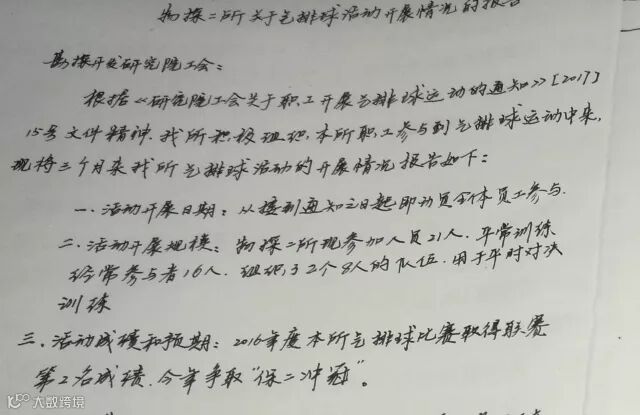 物探二所关于气排球活动开展情况的报告
勘探开发研究院工会：
根据《研究院工会关于职工开展气排球运动的通知》[2017]
15号文件精神，我所积极组织，本所职工参与到气排球运动中来，
现将三个月来我所气排球活动的开展情况报告如下：
一、活动开展日期：从接到通知之日起即动员全体员工参与.
二、活动开展规模：物探二所现参加人员21人，平常训练
经常参与者16人，组织了2个8人的队伍，用于平时对决
训练
三、活动成绩和预期：2016年度本所气排球比赛取得联赛
第2名成绩，今年争取“保二冲冠”。
大数跨境